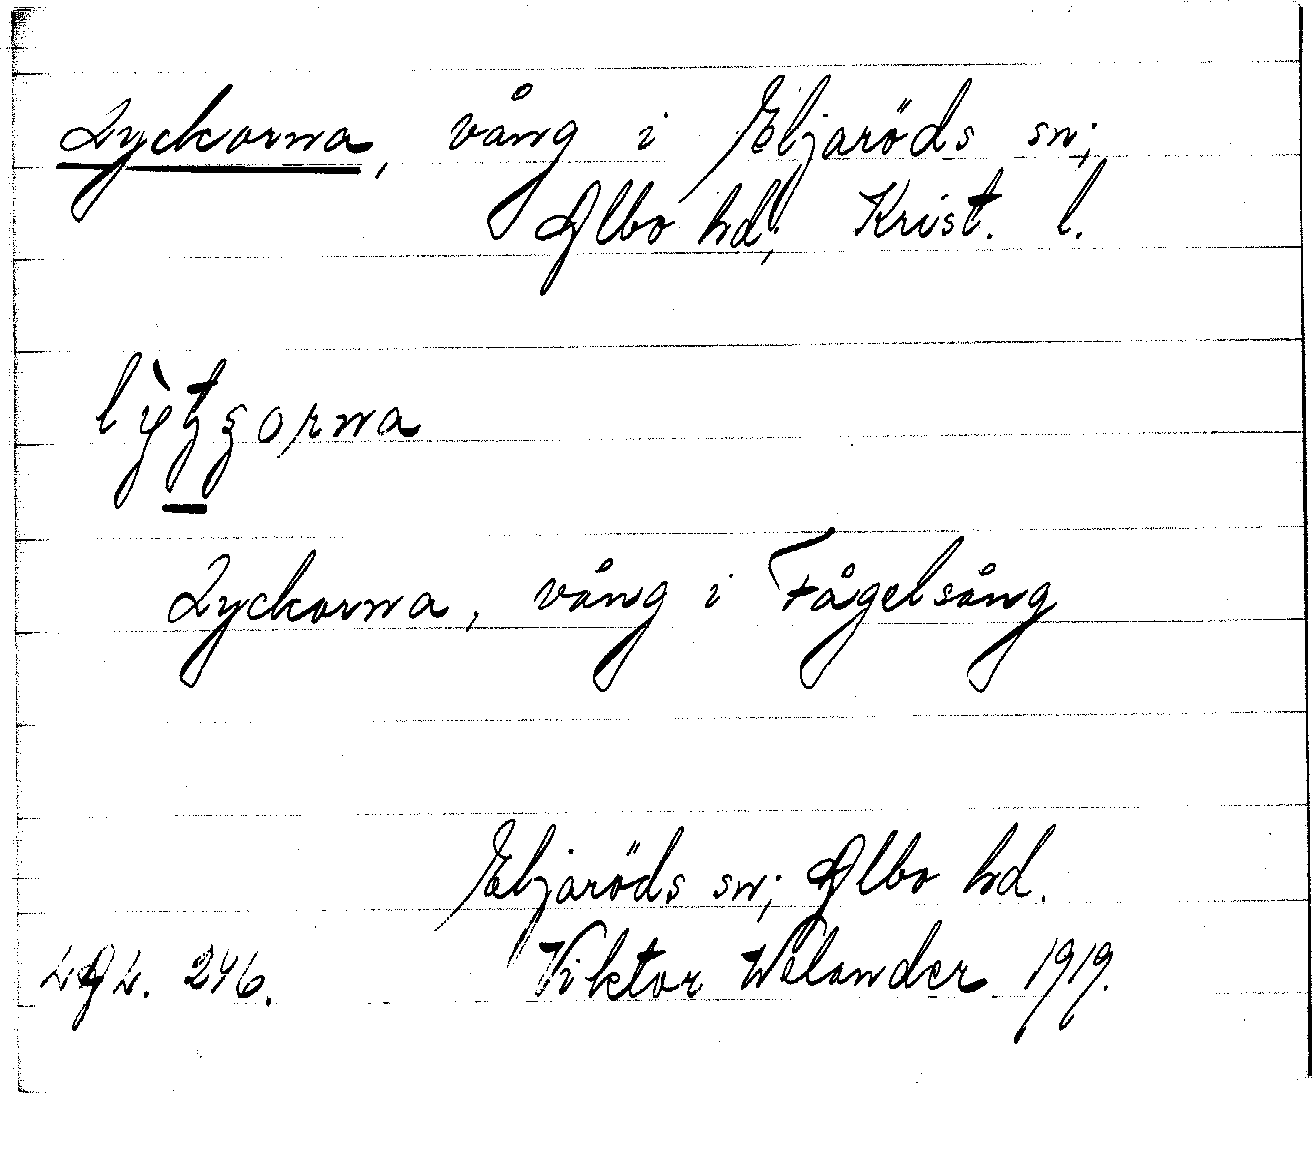 Lyckorna, vång i Eljaröds sn;
Albo hd, Krist. l.
Lyckorna, vång i Fågelsång
Eljaröds sn; Albo hd.
Viktor Welander 1919.